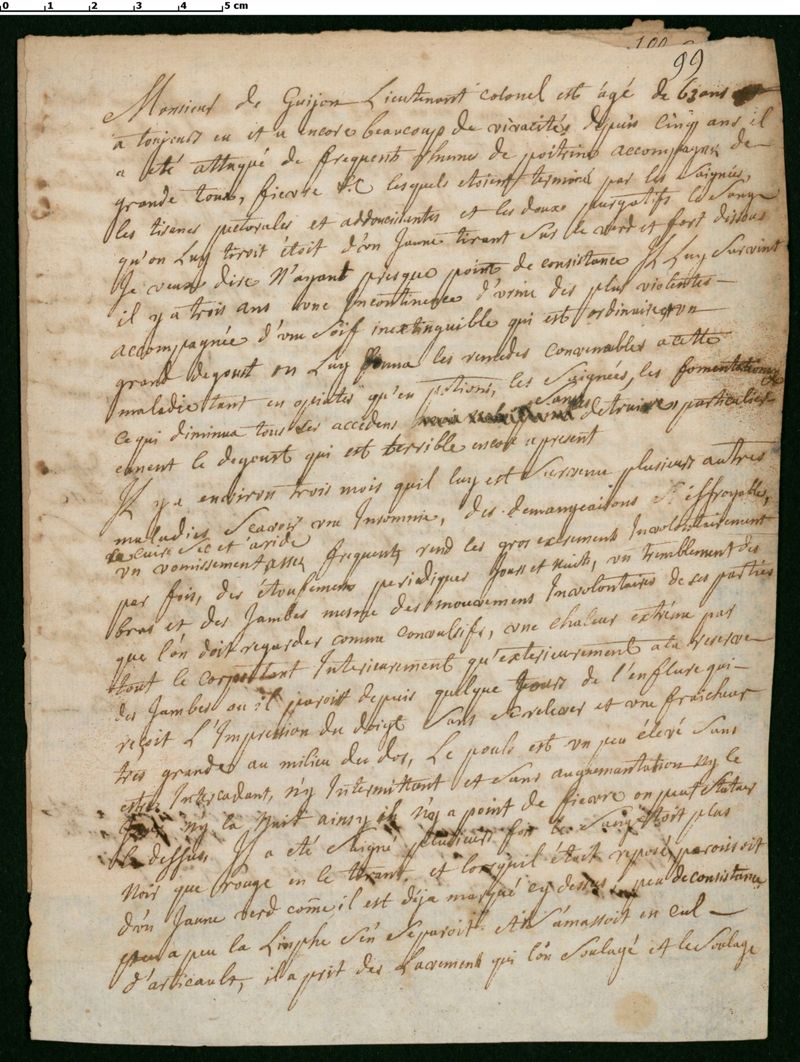 0 1 2 3 4 5 cm
99
Monsieur de Guijon Lieutenant colonel est agé de 63 ans
a toujours eu et a encore beaucoup de vivacités depuis cinq ans il
a eté attaqué de frequents rhumes de poitrine accompagné de
grande toux, fievre &c lesquels etoient terminé par les Saignés,
les tisanes pectorales et addoucisantes et les doux purgatifs le Sang
qu'on Luy tiroit étoit d'un Jaune tirant Sur le verd et fort dissous
Je veux dire N'ayant presque point de consistance Il Luy Survint
il y a trois ans une Incontinence d'urine des plus violentes
accompagnée d'une Soif inextinguible qui est ordinaire un
grand degoust on Luy donna les remedes convenables a cette
maladie tant en opiates qu'en potions, les Saignées, les fomentations &c
ce qui diminua tous ses accedens Sans detruire particulier
ement le degoust qui est terrible encore apresent
Il y a environ trois mois quil luy est Survenu plusieurs autres
maladies Scavoir une Insomnie, des demangeaisons Si éffroyable,
la cuire Sec et aride
un vomissement assez frequent, rend les gros excrements Involontairement
par fois, des étoufements periodiques Jours et nuits, un tremblement des
bras et des Jambes mesme des mouvement Involontaires de ses parties
que l'on doit regarder comme convulsifs, une chaleur extrême par
tout le corps tant Interieurement qu'exterieurement a la reserve
des Jambes ou il paroist depuis quelque Jours de l'enflure qui
reçoit L'Impression du doigt Sans Se relever et une fraicheur
tres grande au milieu du dos, Le pouls est un peu élevé Sans
estre Intercadant, n'y Intermittant et Sans augmentation n'y le
n'y la Nuit ainsy il n'y a point de fievre on peut Statuer
la dessus, Il a eté Saigné plusieurs fois le Sang étoit plus
Noir que rouge en le tirant, et lorsquil était reposé paroissoit
d'un Jaune verd comē il est deja marqué cy dessus, peu de consistance
peu a peu la Linphe S'en Separoit et S'amassoit en cul
d'articault, il a prit des Lavement qui l'on Soulagé et le Soulage